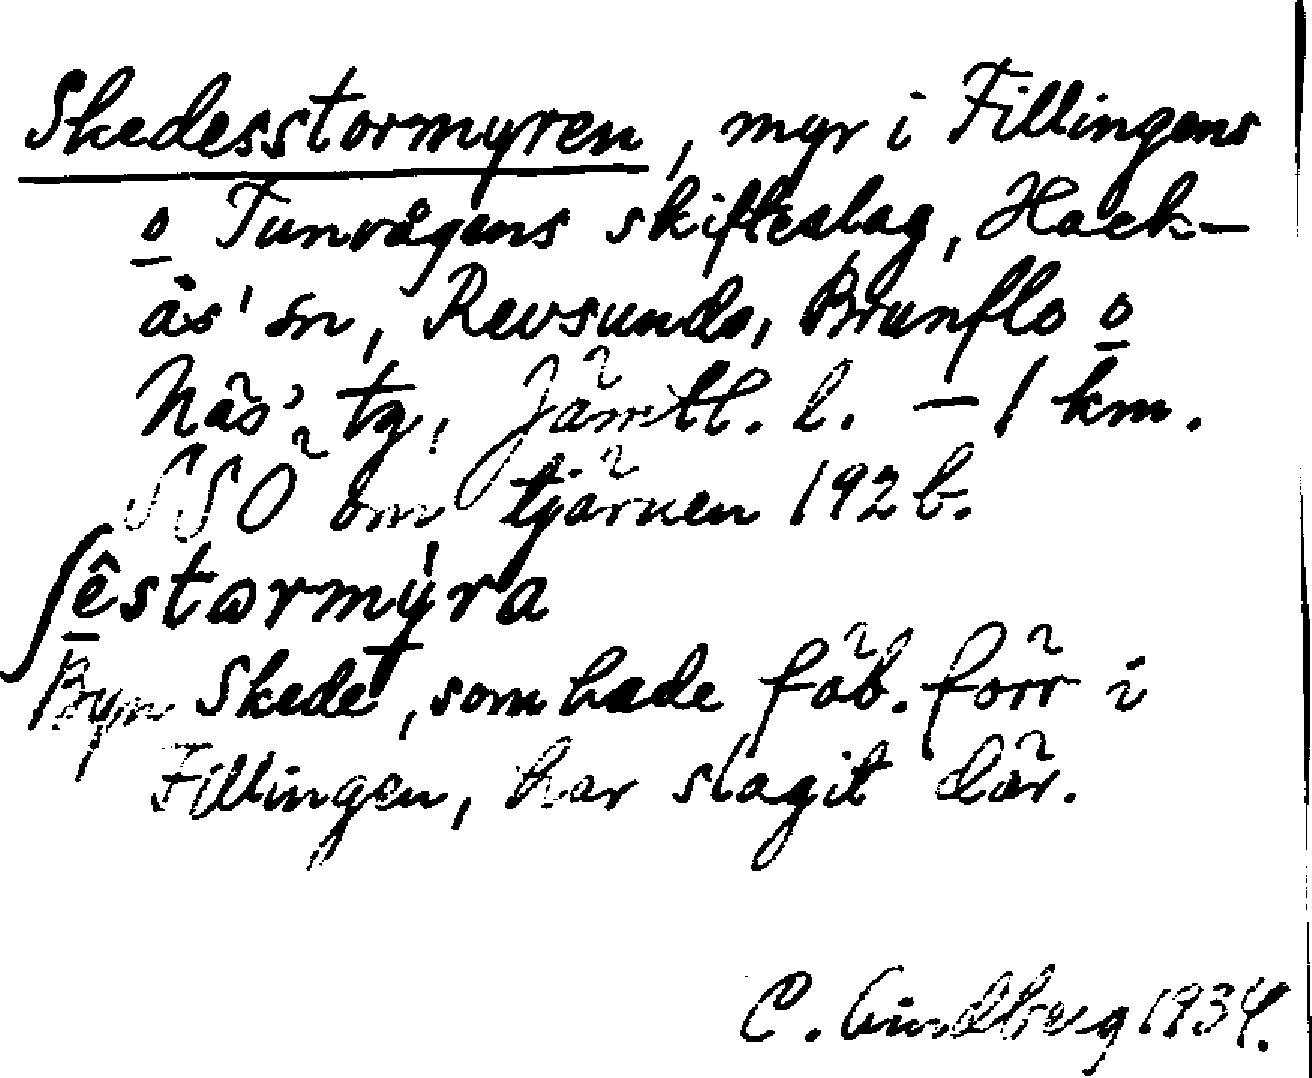 Skedesstormyren, myr i Fillingens
o Tunvågens skifteslag, Hack-
ås' sn, Revsunds, Brunflo o
Näs' tg, Jämtl. l. – 1 km.
SSÖ om tjärnen 192 b.
ʃêstormýra
Byn Skedet, som hade fäb. förr i
Fillingen, har slagit där.
C. Lindberg 1934.